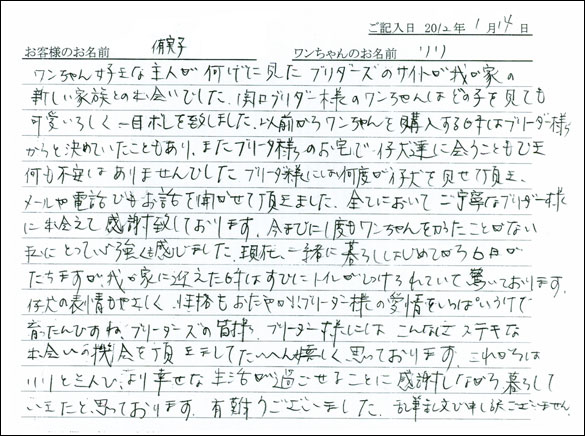 ご記入日 2012年 1月 14日
お客様のお名前 有実子 ワンちゃんのお名前 リリ
ワンちゃん好きな主人が何げに見たブリーダーズのサイトが我が家の
新しい家族との出会いでした。関口ブリーダー様のワンちゃんはどの子を見ても
可愛いらしく一目ボレを致しました。以前からワンちゃんを購入する時はブリーダー様
からと決めていたこともあり、またブリーダー様のお宅で仔犬達に会うこともでき
何も不安はありませんでした。ブリーダー様には何度か仔犬を見せて頂き、
メールや電話でもお話を聞かせて頂きました。全てにおいてご丁寧なブリーダー様
に出会えて感謝致しております。今までに1度もワンちゃんをかったことがない
私にとって心強くも感じました。現在、一緒に暮らしはじめてから6日が
たちますが我が家に迎えた時はすでにトイレがしつけられていて驚いております。
仔犬の表情もやさしく、性格もおだやかで ブリーダー様の愛情をいっぱいうけて
育ったんですね。ブリーダーズの皆様、ブリーダー様にはこんなにステキな
出会いの機会を頂きましてたいへん嬉しく思っております。これからは
リリと三人で、より幸せな生活が過ごせることに感謝しながら暮らして
いきたいと思っております。有難うございました。乱筆乱文で申し訳ございません。